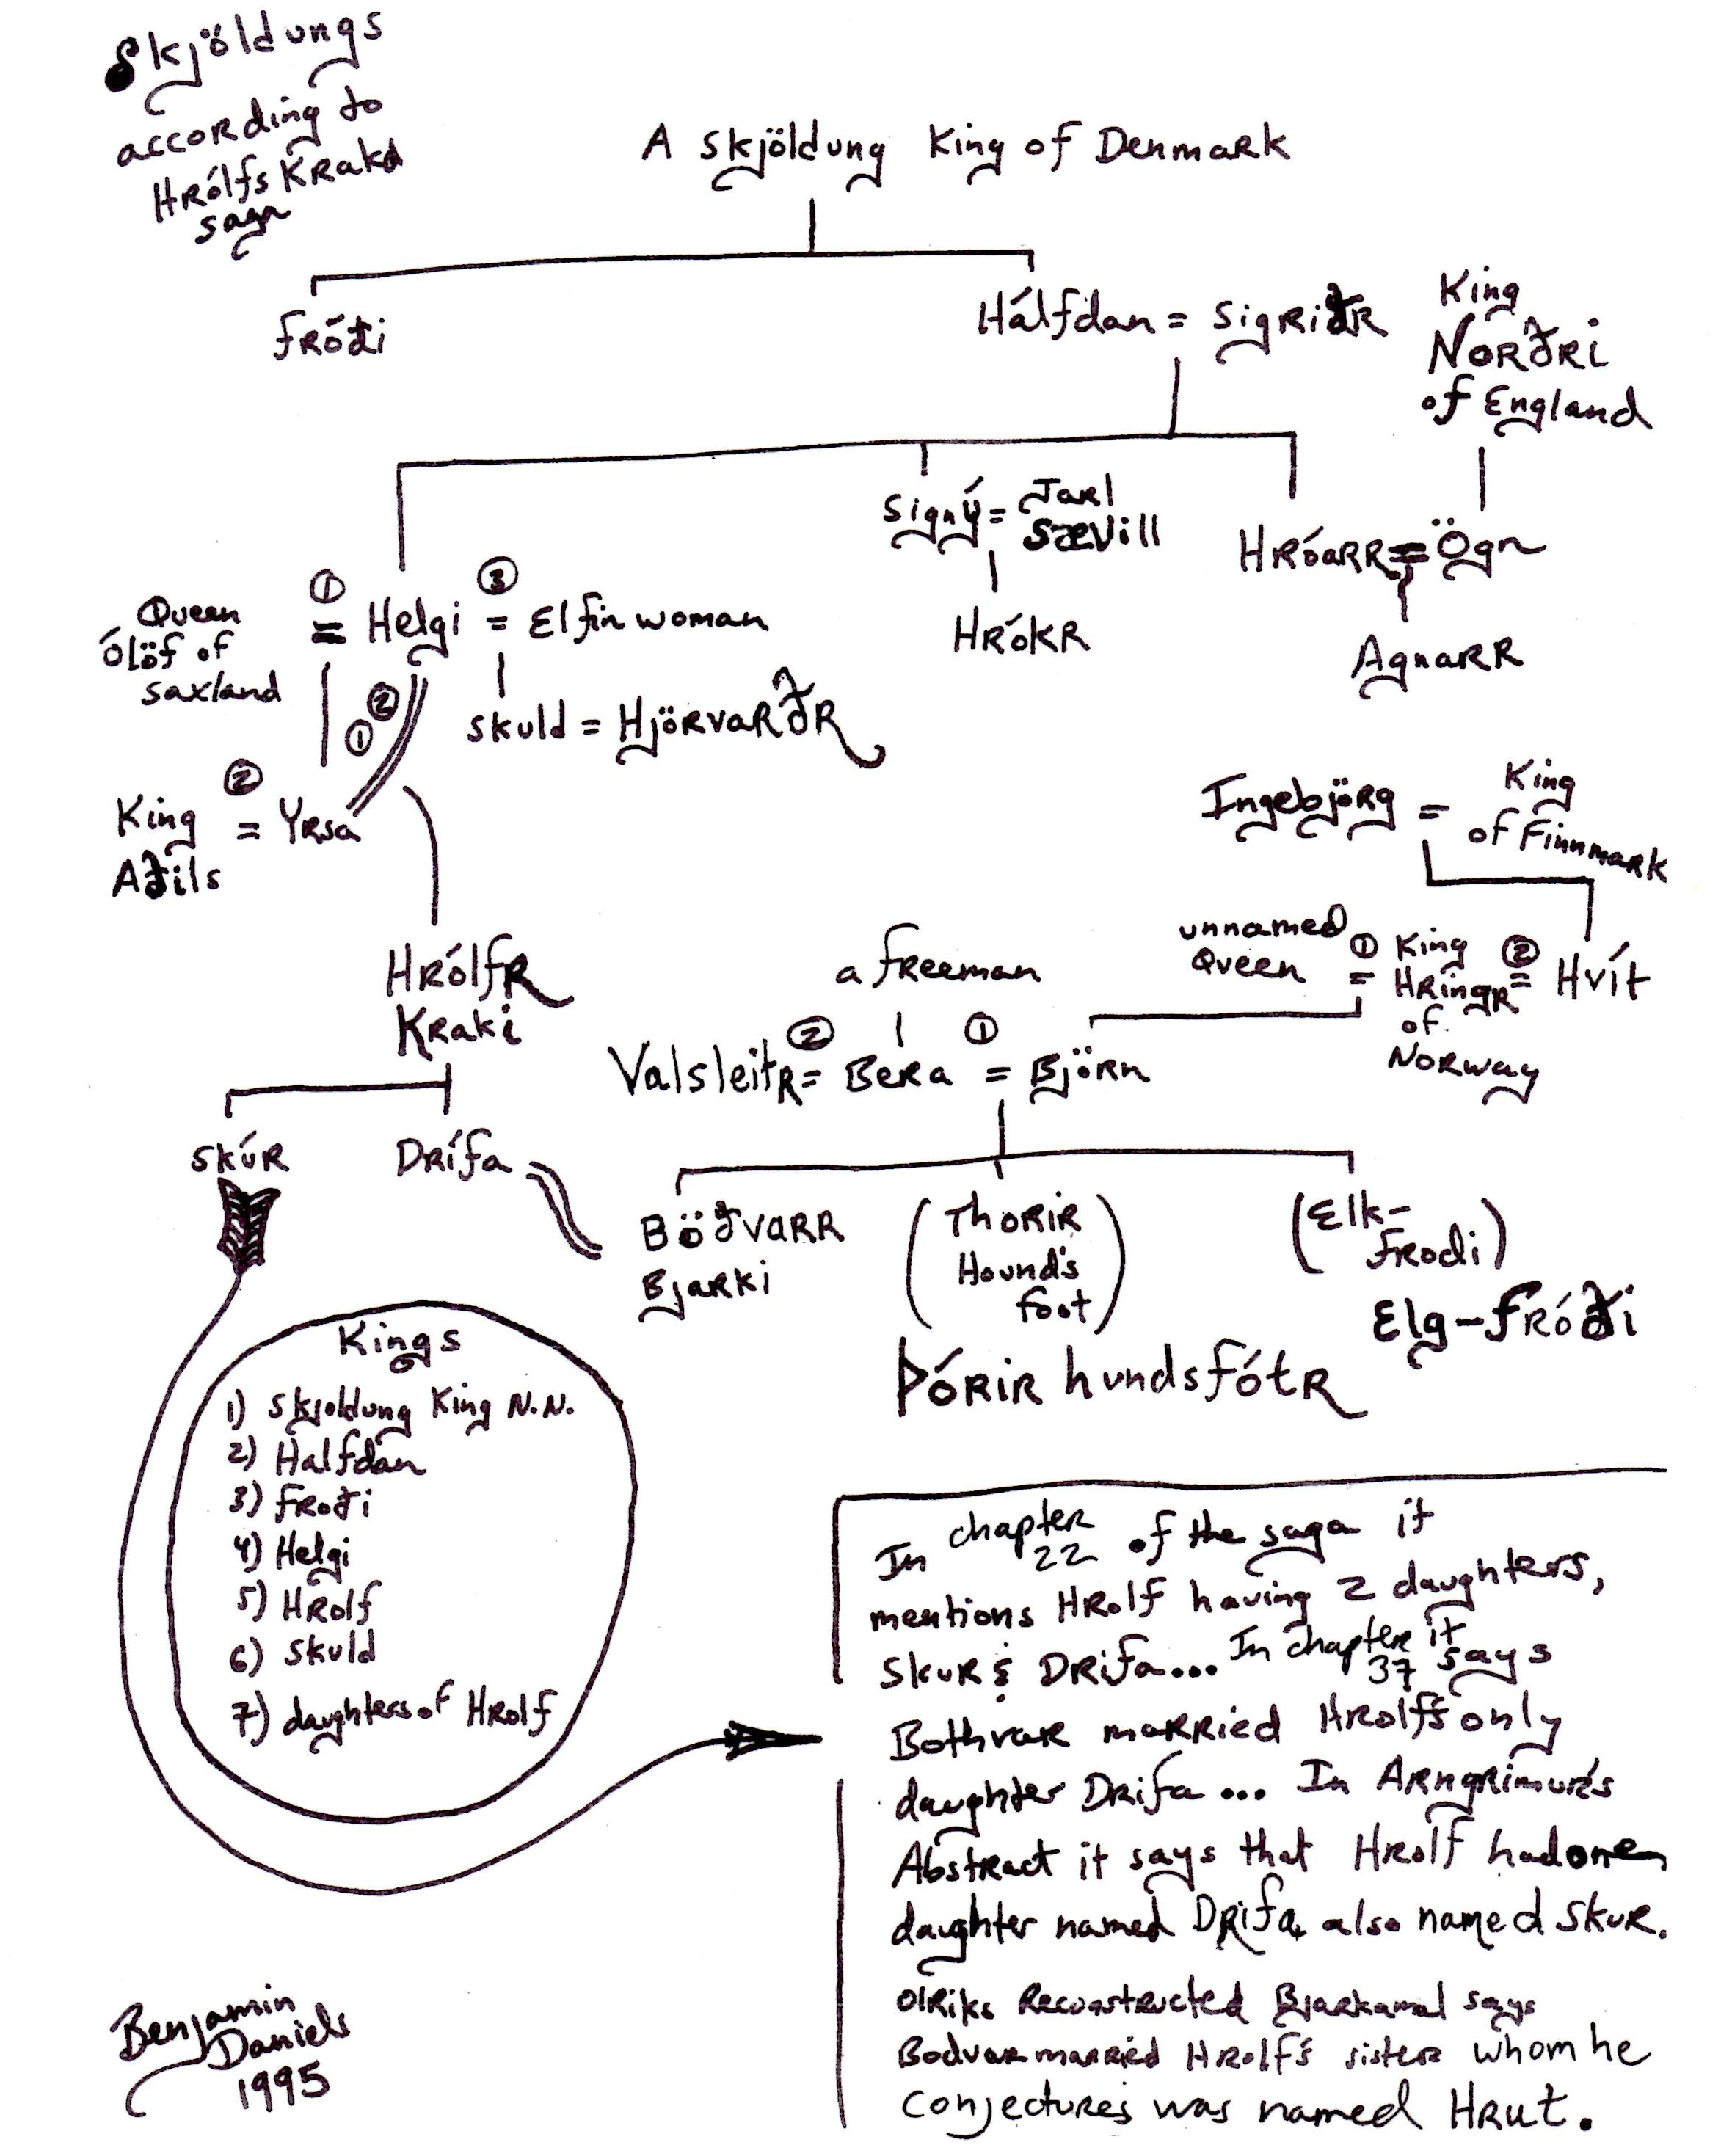 Skjöldungs
according to
Hrólfs Kraka
saga
A Skjöldung King of Denmark
Fróði
Hálfdan = Sigriðr
King
Norðri
of England
Signý = Jarl
Sævill
Hróarr = Ögn
Hrókr
Agnarr
Queen
Ólöf of
Saxland
① = Helgi ③ = Elfin woman
② ①
Skuld = Hjörvarðr
King
Aðils
② = Yrsa
Ingebjörg = King
of Finnmark
Hrólfr
Kraki
a freeman
unnamed
Queen
① = King
Hringr
of
Norway
② = Hvít
Valsleitr ② = Bera ① = Björn
Skúr
Drífa
Böðvarr
Bjarki
(Thorir
Hound's
foot)
Þórir hundsfótr
(Elk-
Frodi)
Elg-Fróði
Kings
1) Skjoldung King N.N.
2) Halfdan
3) Froði
4) Helgi
5) Hrolf
6) Skuld
7) daughters of Hrolf
In chapter 22 of the saga it
mentions Hrolf having 2 daughters,
Skur & Drifa... In chapter 37 it says
Bothvar married Hrolf's only
daughter Drifa... In Arngrimur's
Abstract it says that Hrolf had one
daughter named Drifa, also named Skur.
Olriks Reconstructed Bjarkamal says
Bodvar married Hrolf's sister whom he
conjectures was named Hrut.
Benjamin
Daniels
1995